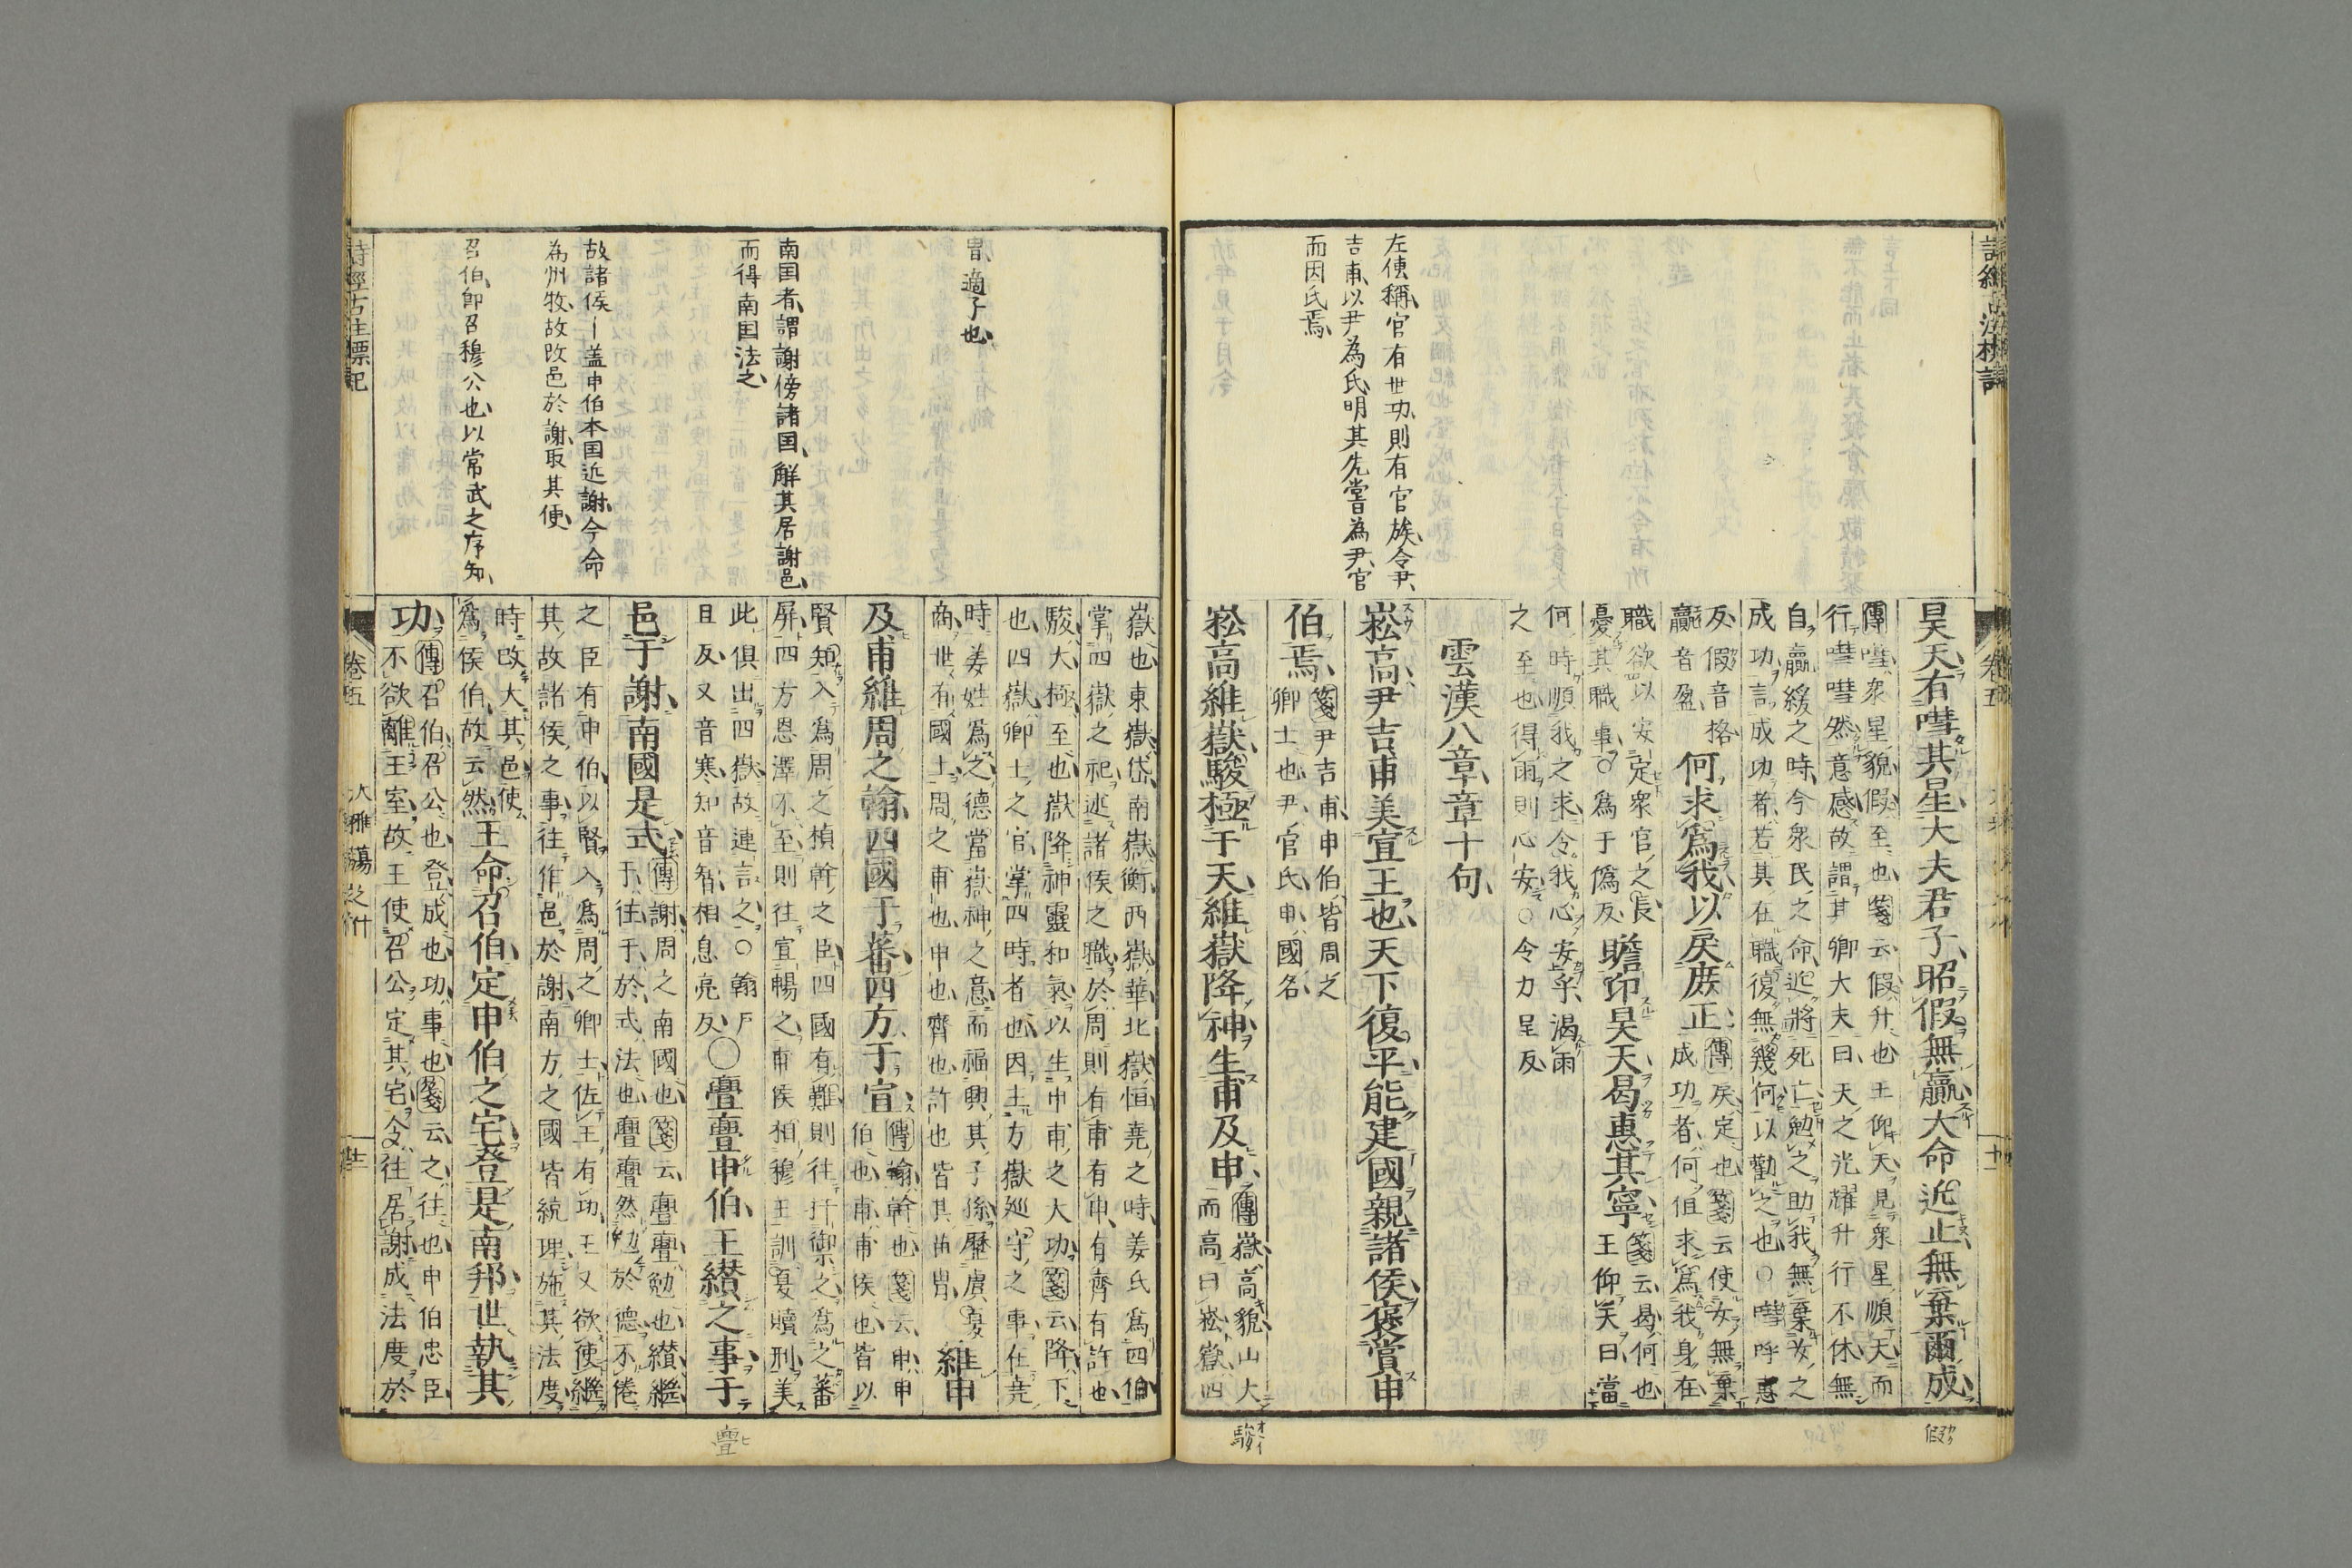 左傳稱官有世功則有官族令尹
吉甫以尹為氏明其先嘗為尹官
而因氏焉
昊天有嘒其星大夫君子昭假無贏大命近止無棄爾成
傳嘒衆星貌假至也箋云假升也王仰天見衆星順天而
行嘒嘒然意感故謂其卿大夫曰天之光耀升行不休無
自贏緩之時今衆民之命近將死亡勉之助我無棄女之
成功言成功者若其在職復無幾何以勸之也○嘒呼惠
反假音格
贏音盈
何求爲我以戾庶正
傳戾定也箋云使女無棄
成功者何但求爲我身在
職欲以安定衆官之長
憂其職事○爲于僞反
瞻卬昊天曷惠其寧
箋云曷何也
王仰天曰當
何時順我之求令我心安乎渴雨
之至也得雨則心安○令力呈反
雲漢八章章十句
崧高尹吉甫美宣王也天下復平能建國親諸侯褒賞申
伯焉
箋尹吉甫申伯皆周之
卿士也尹官氏申國名
崧高維嶽駿極于天維嶽降神生甫及申
傳嶽高貌山大
而高曰崧嶽四
假
駿
冑適子也
南国者謂謝傍諸国解其居謝邑
而得南国法之
故諸侯―盖申伯本国近謝今命
為州牧故改邑於謝取其便
召伯即召穆公也以常武之序知
嶽也東嶽岱南嶽衡西嶽華北嶽恒堯之時姜氏爲四伯
掌四嶽之祀述諸侯之職於周則有甫有申有齊有許也
駿大極至也嶽降神靈和氣以生申甫之大功箋云降下
也四嶽卿士之官掌四時者也因主方嶽巡守之事在堯
時姜姓爲之德當嶽神之意而福興其子孫歷虞夏
商世有國土周之甫也申也齊也許也皆其苗冑
維申
及甫維周之翰四國于蕃四方于宣
傳翰幹也箋云申申
伯也甫甫侯也皆以
賢知入爲周之楨幹之臣四國有難則往扞禦之爲之蕃
屏四方恩澤不至則往宣暢之甫侯相穆王訓夏贖刑美
此俱出四嶽故連言之○翰戶
旦反又音寒知音智相息亮反
○亹亹申伯王纘之事于
邑于謝南國是式
傳謝周之南國也箋云亹亹勉也纘繼
于往于於式法也亹亹然勉於德不倦
之臣有申伯以賢入爲周之卿士佐王有功王又欲使繼
其故諸侯之事往作邑於謝南方之國皆統理施其法度
時改大其邑使
爲侯伯故云然
王命召伯定申伯之宅登是南邦世執其
功
傳召伯召公也登成也功事也箋云之往也申伯忠臣
不欲離王室故王使召公定其宅令往居謝成法度於
詩經古注標記
卷五
大雅蕩之什
亹